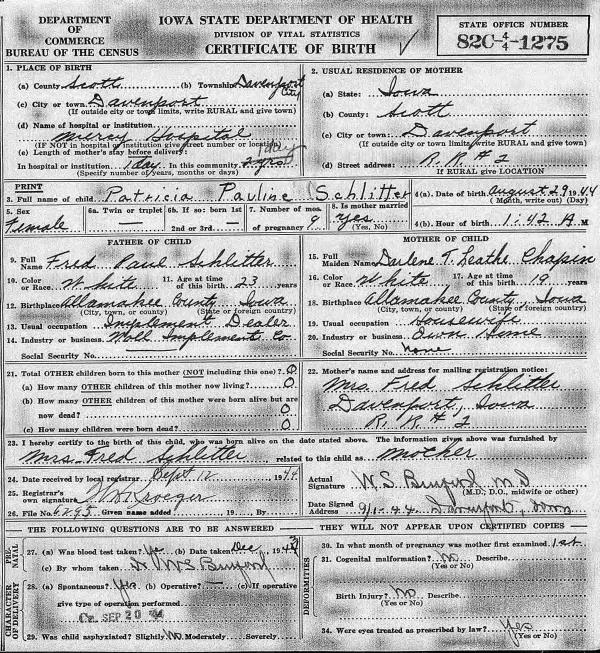 DEPARTMENT OF COMMERCE BUREAU OF THE CENSUS
IOWA STATE DEPARTMENT OF HEALTH
DIVISION OF VITAL STATISTICS
CERTIFICATE OF BIRTH ✓
STATE OFFICE NUMBER
82C-4/4-1275
1. PLACE OF BIRTH
(a) County Scott (b) Township Davenport City
(c) City or town Davenport
(If outside city or town limits, write RURAL and give town)
(d) Name of hospital or institution
Mercy Hospital
(IF NOT in hospital or institution give street number or location)
(e) Length of mother's stay before delivery: 1 day
In hospital or institution. 1 day. In this community 2 yrs
(Specify number of years, months or days)
2. USUAL RESIDENCE OF MOTHER
(a) State: Iowa
(b) County: Scott
(c) City or town: Davenport
(If outside city or town limits write RURAL and give town)
(d) Street address: R. R. # 2
If RURAL give LOCATION
PRINT
3. Full name of child Patricia Pauline Schlitter
4(a). Date of birth August 29 1944
(Month, write out) (Day)
5. Sex Female
6a. Twin or triplet
6b. If so: born 1st 2nd or 3rd.
7. Number of mos. of pregnancy 9
8. Is mother married yes (Yes, No)
4(b). Hour of birth 1:42 A M
FATHER OF CHILD
9. Full Name Fred Paul Schlitter
10. Color or Race White 11. Age at time of this birth 23 years
12. Birthplace Allamakee County Iowa
(City, town, or county) (State or foreign country)
13. Usual occupation Implement Dealer
14. Industry or business Moll Implement Co
Social Security No.
MOTHER OF CHILD
15. Full Maiden Name Darlene T. Beathe Chapin
16. Color or Race White 17. Age at time of this birth 19 years
18. Birthplace Allamakee County, Iowa
(City, town, or county) (State or foreign country)
19. Usual occupation Housewife
20. Industry or business Own Home
Social Security No. None
21. Total OTHER children born to this mother (NOT including this one)? 0
(a) How many OTHER children of this mother now living? 0
(b) How many OTHER children of this mother were born alive but are
now dead? 0
(c) How many children were born dead? 0
22. Mother's name and address for mailing registration notice:
Mrs. Fred Schlitter
Davenport, Iowa
R. R. # 2
23. I hereby certify to the birth of this child, who was born alive on the date stated above. The information given above was furnished by
Mrs. Fred Schlitter, related to this child as mother
24. Date received by local registrar Sept 12 1944
25. Registrar's own signature Kroeger
26. File No. 6295 Given name added 19 By
Actual Signature W. S. Binford M D
(M.D., D.O., midwife or other)
Date Signed 9/1-44 Davenport, Iowa
Address
THE FOLLOWING QUESTIONS ARE TO BE ANSWERED
THEY WILL NOT APPEAR UPON CERTIFIED COPIES
PRE-NATAL
27. (a) Was blood test taken? Yes (b) Date taken Dec 1943
(c) By whom taken Dr W S Binford
CHARACTER OF DELIVERY
28. (a) Spontaneous? Yes (b) Operative? — (c) If operative
give type of operation performed
SEP 20 44
29. Was child asphyxiated? Slightly No Moderately Severely
30. In what month of pregnancy was mother first examined 1st
DEFORMITIES
31. Congenital malformation? No Describe
(Yes or No)
Birth Injury? No Describe
(Yes or No)
34. Were eyes treated as prescribed by law? Yes
(Yes or No)